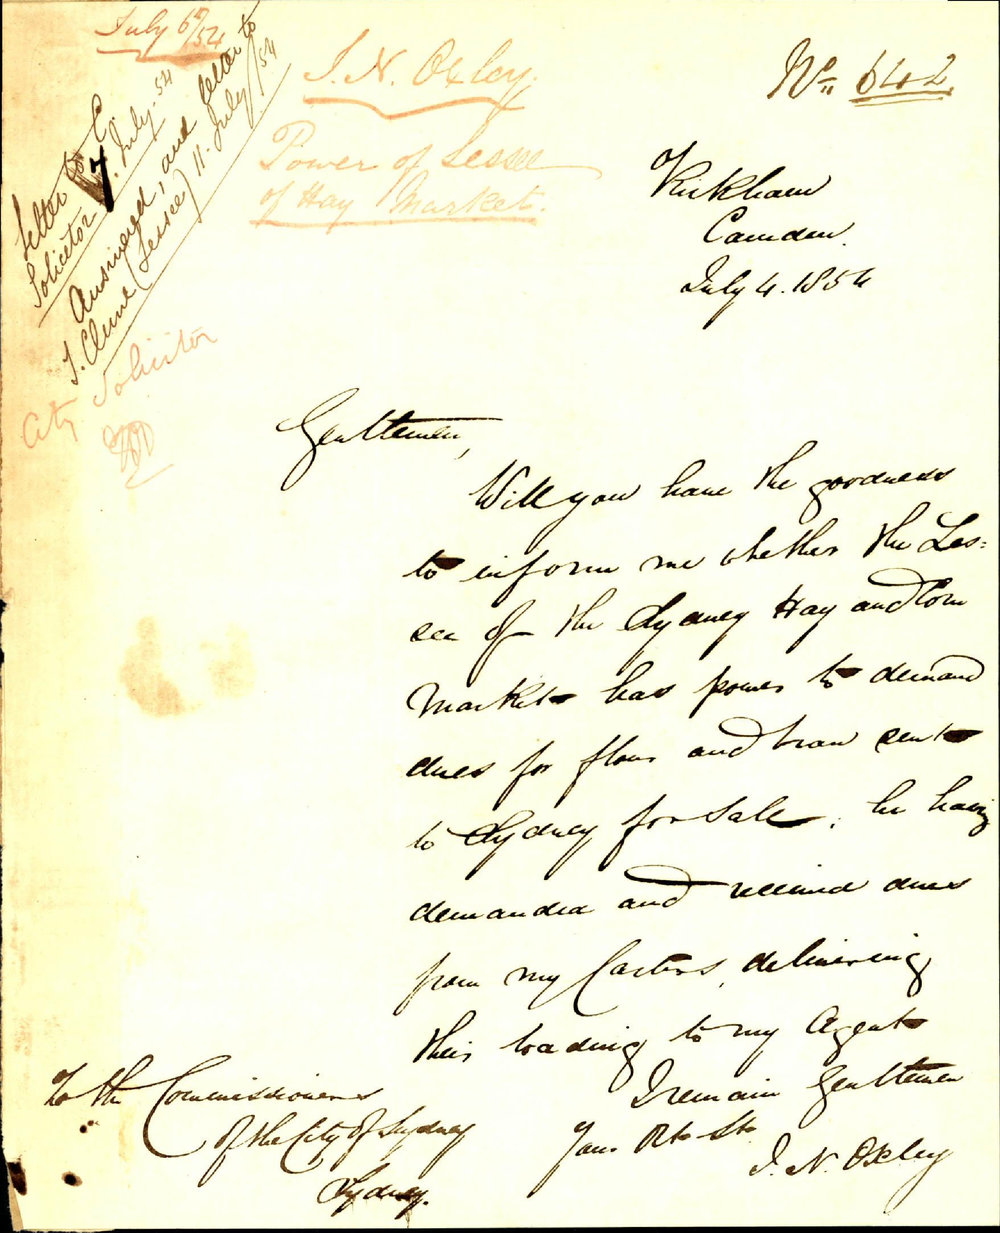 July 6th/54
J. N. Oxley.
Power of Lessee
of Hay Market.
No. 642
Letter to C.
Solicitor 7. July. 54
Answered, and letter to
J. Clune (Lessee) 11. July/54
City Solicitor
Kirkham
Camden.
July 4. 1854
Gentlemen,
Will you have the goodness
to inform me whether the Les=
see of the Sydney Hay and Corn
Market has power to demand
dues for flour and bran sent
to Sydney for Sale, he having
demanded and received dues
from my Carters, delivering
their loading to my Agent
I remain Gentlemen
Your Obt St
J. N. Oxley
To the Commissioners
of the City of Sydney
Sydney.